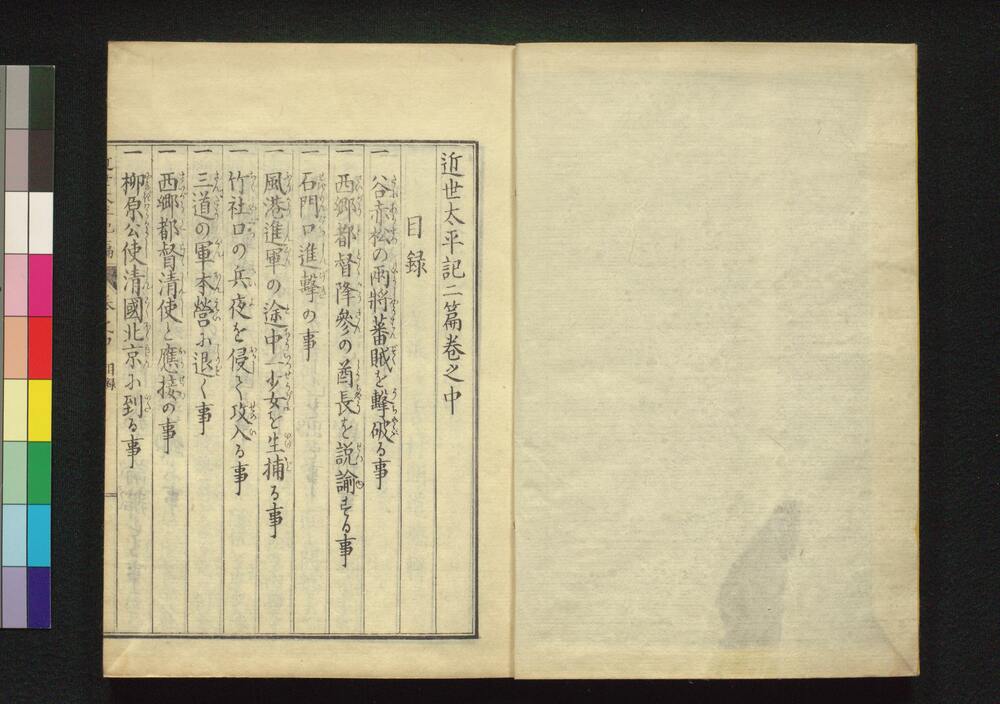 近世太平記二篇卷之中
目録
一 谷赤松の兩將蕃賊を擊破る事
一 西郷都督降參の酋長を説諭する事
一 石門口進擊の事
一 風港進軍の途中一少女を生捕る事
一 竹社口の兵夜を侵して攻入る事
一 三道の軍本營に退く事
一 西郷都督清使と應接の事
一 柳原公使清國北京に到る事